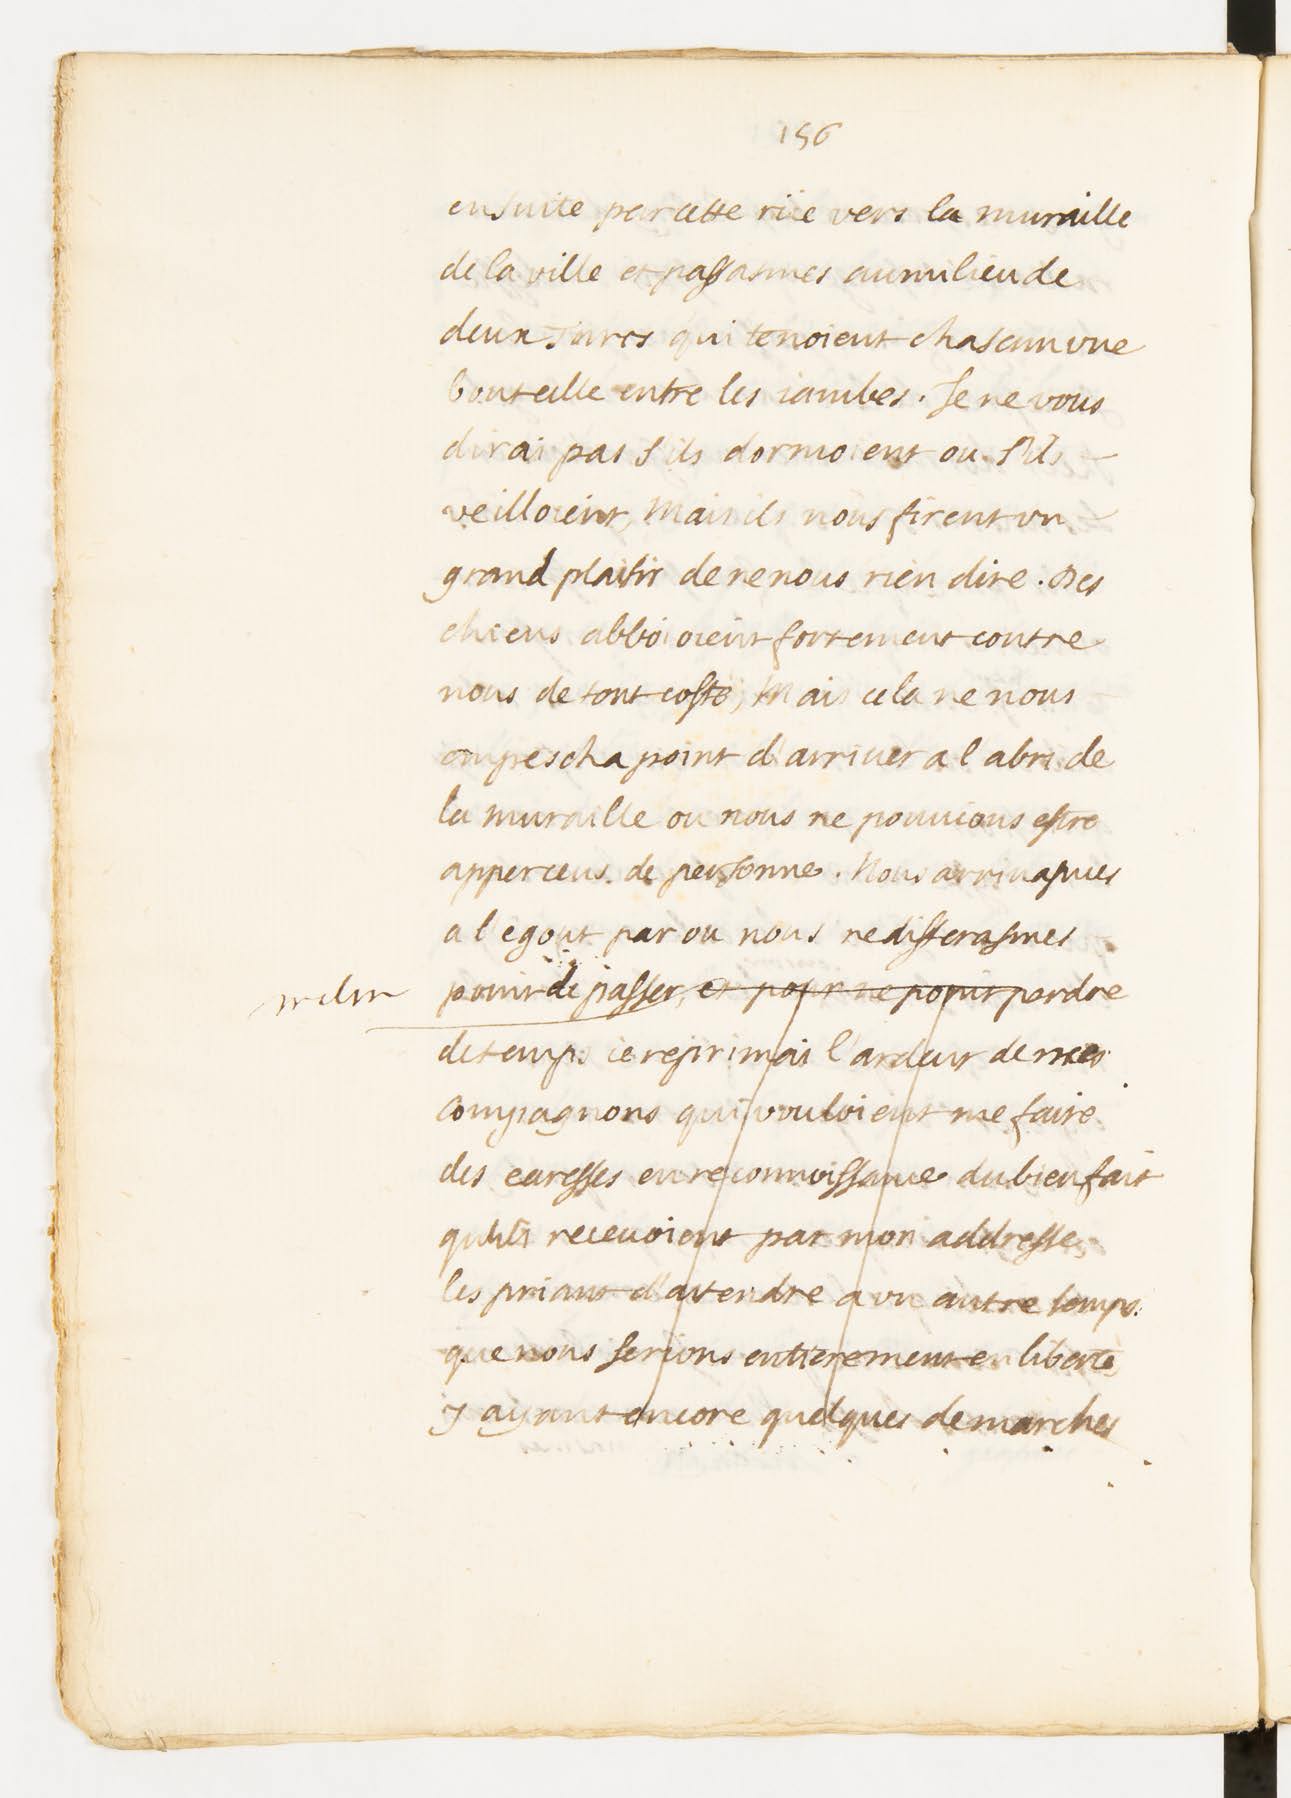 156
ensuite par cette rüe vers la muraille
de la ville et passasmes au milieu de
deux Turcs qui tenoient chascun vne
bouteille entre les iambes. Je ne vous
dirai pas s'ils dormoient ou s'ils
veilloient, Mais ils nous firent vn
grand plaisir de ne nous rien dire. Des
chiens abboioient fortement contre
nous de tout costé, Mais cela ne nous
empescha point d'arriuer a l'abri de
la muraille ou nous ne pouuions estre
apperceus de personne. Nous arriuasmes
a l'egout par ou nous ne differasmes
point de passer, et pour ne point perdre
de temps ie reprimai l'ardeur de mes
compagnons qui vouloient me faire
des caresses en reconnoissance du bienfait
qu'ils receuoient par mon addresse,
les priant d'attendre a vn autre temps
que nous serions entierement en liberté,
y ayant encore quelques demarches